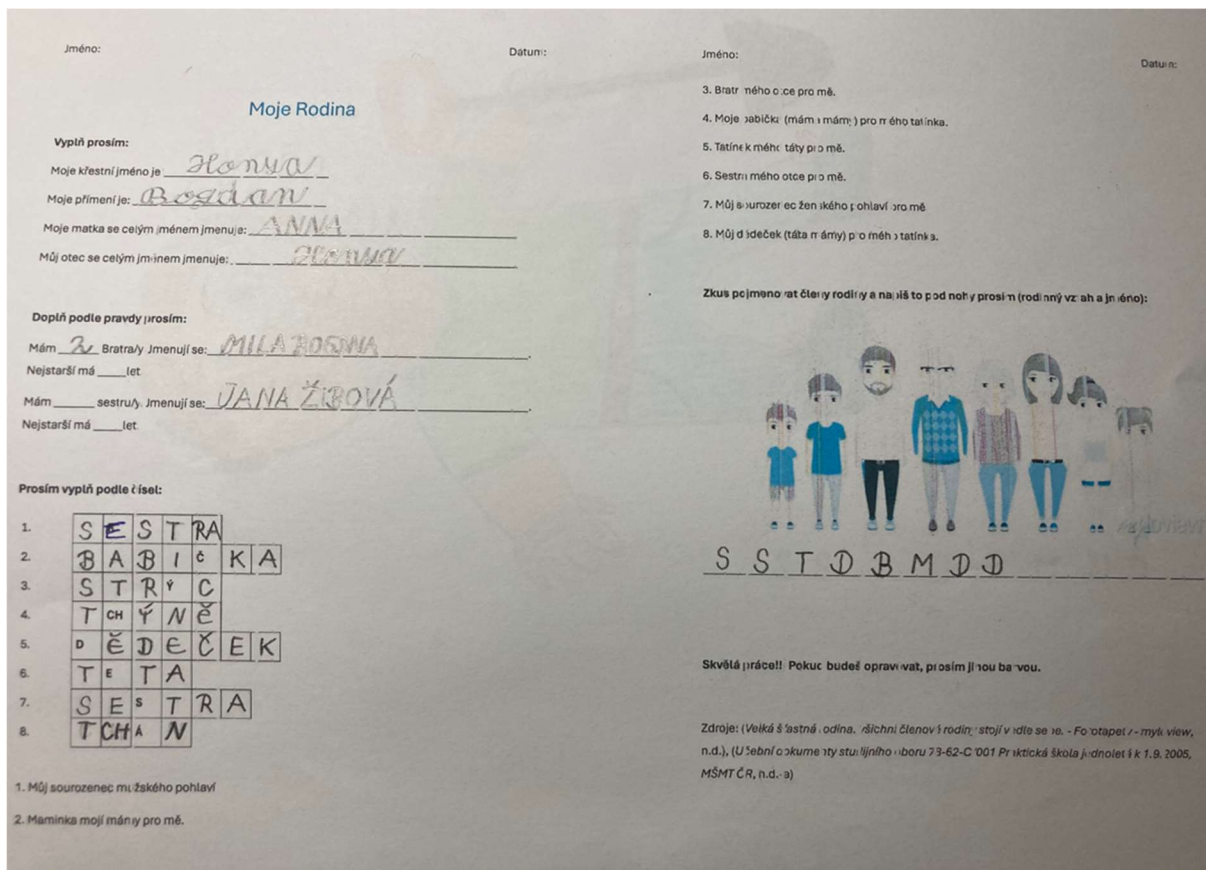 Jméno: Datum:
Moje Rodina
Vyplň prosím:
Moje křestní jméno je Honya
Moje přímení je: Bogdan
Moje matka se celým jménem jmenuje: ANNA
Můj otec se celým jménem jmenuje: Honya
Doplň podle pravdy prosím:
Mám 2 Bratra/y Jmenují se: MILA
Nejstarší má ____let
Mám ____ sestru/y. Jmenují se: JANA ŽIROVÁ
Nejstarší má ____let
Prosím vyplň podle čísel:
1. SESTRA
2. BABIČKA
3. STRÝC
4. TCHÝNĚ
5. DĚDEČEK
6. TETA
7. SESTRA
8. TCHÁN
1. Můj sourozenec mužského pohlaví
2. Maminka mojí mámy pro mě.
Jméno: Datum:
3. Bratr mého otce pro mě.
4. Moje babička (máma mámy) pro mého tatínka.
5. Tatínek mého táty pro mě.
6. Sestra mého otce pro mě.
7. Můj sourozenec ženského pohlaví pro mě
8. Můj dědeček (táta mámy) pro mého tatínka.
Zkus pojmenovat členy rodiny a napiš to pod nohy prosím (rodinný vztah a jméno):
S S T D B M D D
Skvělá práce!! Pokud budeš opravovat, prosím jinou barvou.
Zdroje: (Velká šťastná rodina. všichni členové rodiny stojí vedle sebe. - Fototapety - myloview,
n.d.), (Učební dokumenty studijního oboru 78-62-C/001 Praktická škola jednoletá k 1.9. 2005,
MŠMT ČR, n.d.-a)